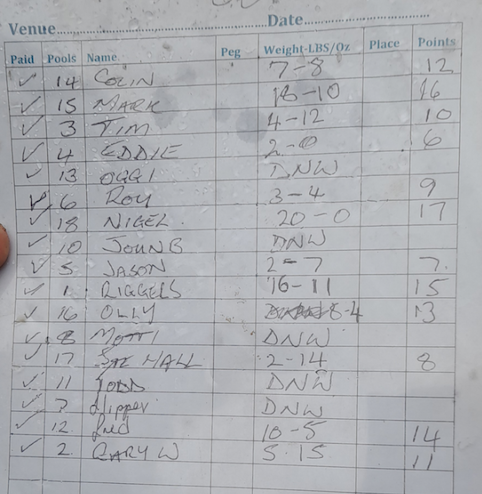 Venue Date
Paid Pools Name Peg Weight-LBS/Oz Place Points
✓ 14 COLIN 7-8 12
✓ 15 MARK 18-10 16
✓ 3 TIM 4-12 10
✓ 4 EDDIE 2-0 6
✓ 13 OGGI DNW
✓ 6 ROY 3-4 9
✓ 18 NIGEL 20-0 17
✓ 10 JOHN B DNW
✓ 5 JASON 2-7 7.
✓ 1 RIGGERS 16-11 15
✓ 16 OLLY 8-4 13
✓ 8 DNW
✓ 17 HALL 2-14 8
✓ 11 TODD DNW
✓ 7 DNW
✓ 12 10-5 14
✓ 2 GARY W 5.15 11